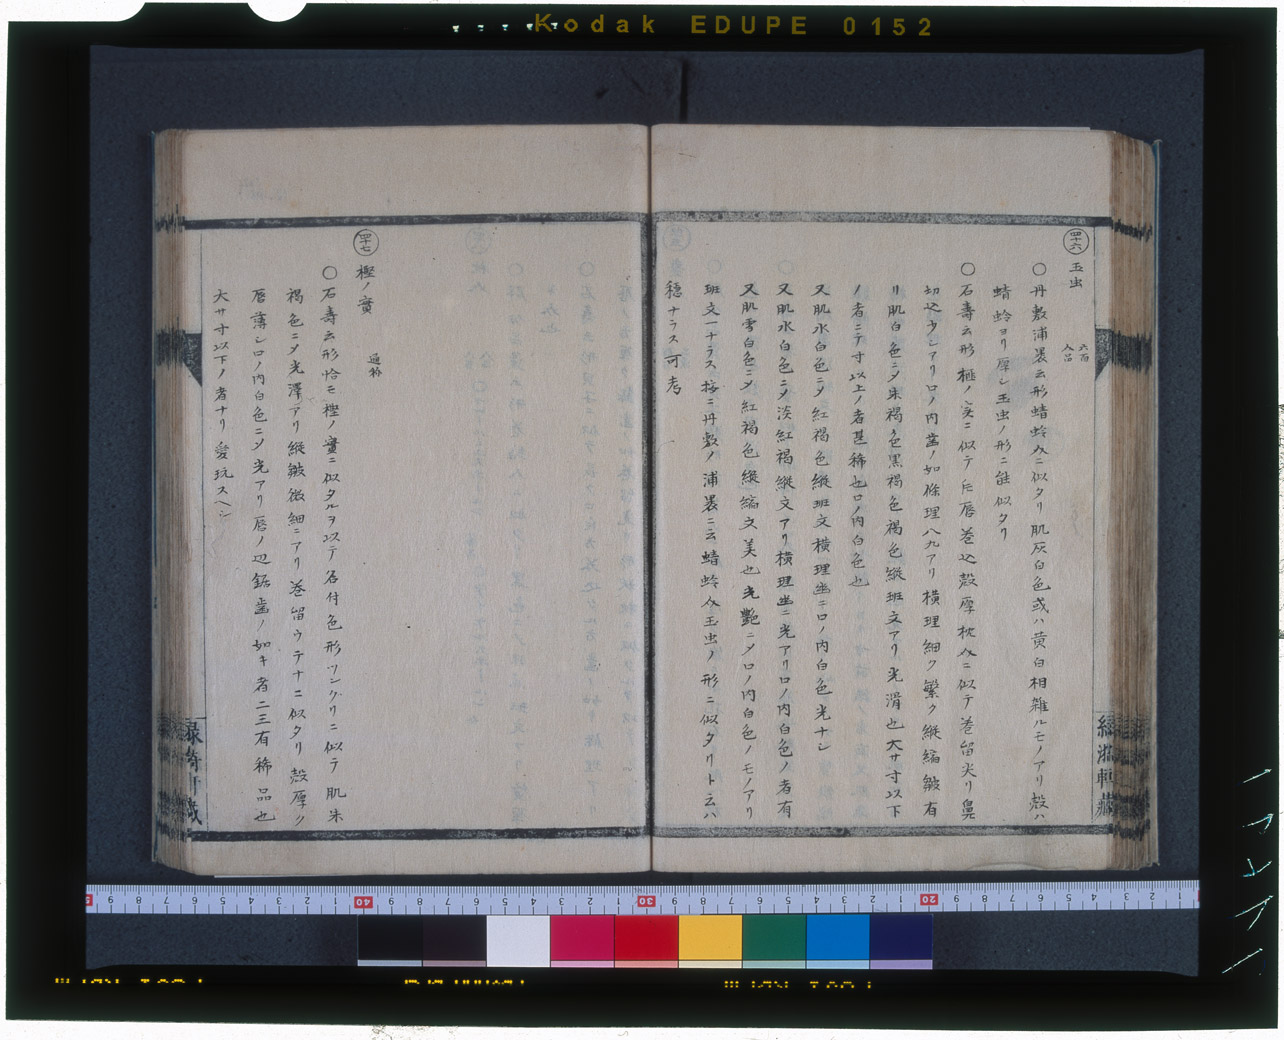 Kodak EDUPE 0152
四十六 玉虫 六百入品
〇丹敷浦裏云形蜻蛉介ニ似タリ肌灰白色或ハ黄白相雑ルモノアリ殻ハ
蜻蛉ヨリ厚シ玉虫ノ形ニ能似タリ
〇石壽云形榧ノ実ニ似テ圧唇巻込殻厚枕介ニ似テ巻留尖リ鼻
切込少シアリ口ノ内歯ノ如條理八九アリ横理細ク繁ク縦縞皺有
リ肌白色ニメ朱褐色黒褐色褐色縦班文アリ光滑也大サ寸以下
ノ者ニテ寸以上ノ者甚稀也口ノ内白色也
又肌水白色ニメ紅褐色縦班文横理幽ニ口ノ内白色光ナシ
又肌水白色ニメ淡紅褐縦文アリ横理幽ニ光アリ口ノ内白色ノ者有
又肌雪白色ニメ紅褐色縦縞文美也光艶ニメ口ノ内白色ノモノアリ
班文一ナラス按ニ丹敷ノ浦裏ニ云蜻蛉介玉虫ノ形ニ似タリト云ハ
穏ナラス可考
四十七 樫ノ實 通称
〇石壽云形恰モ樫ノ實ニ似タルヲ以テ名付色形ツングリニ似テ肌朱
褐色ニメ光澤アリ縦皺微細ニアリ巻留ウテナニ似タリ殻厚ク
唇薄シ口ノ内白色ニメ光アリ唇ノ辺鋸歯ノ如キ者二三有稀品也
大サ寸以下ノ者ナリ愛玩スヘシ